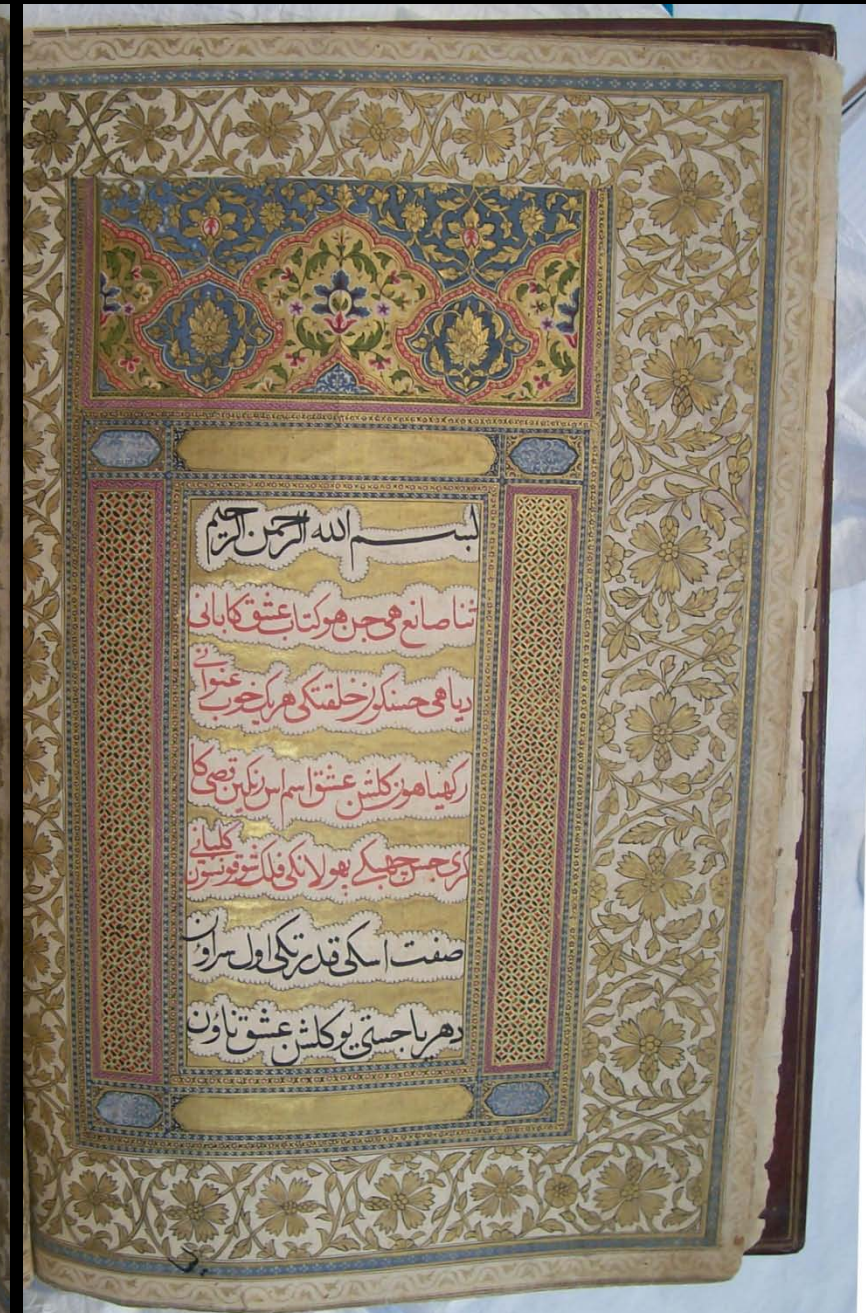 بسم الله الرحمن الرحیم
ثنا صانع هی جن هو کتاب عشق کا بانی
دیا هی حسنکون خلقتکی هریک خوب عنوانی
رکهیا هون کلشن عشق اسم اس رنکین قصی کا
کری جس چهبکی پهولانکی فلک شوقونسون کلبانی
صفت اسکی قدرتکی اول سراون
دهریا جستی یو کلشن عشق ناون